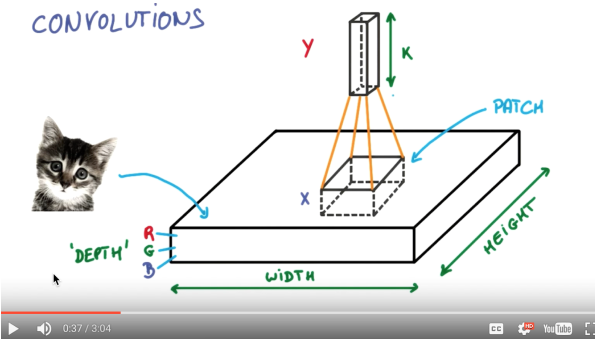 CONVOLUTIONS
Y
K
PATCH
X
R
'DEPTH' G
B
WIDTH
HEIGHT
0:37 / 3:04
CC
HD
YouTube